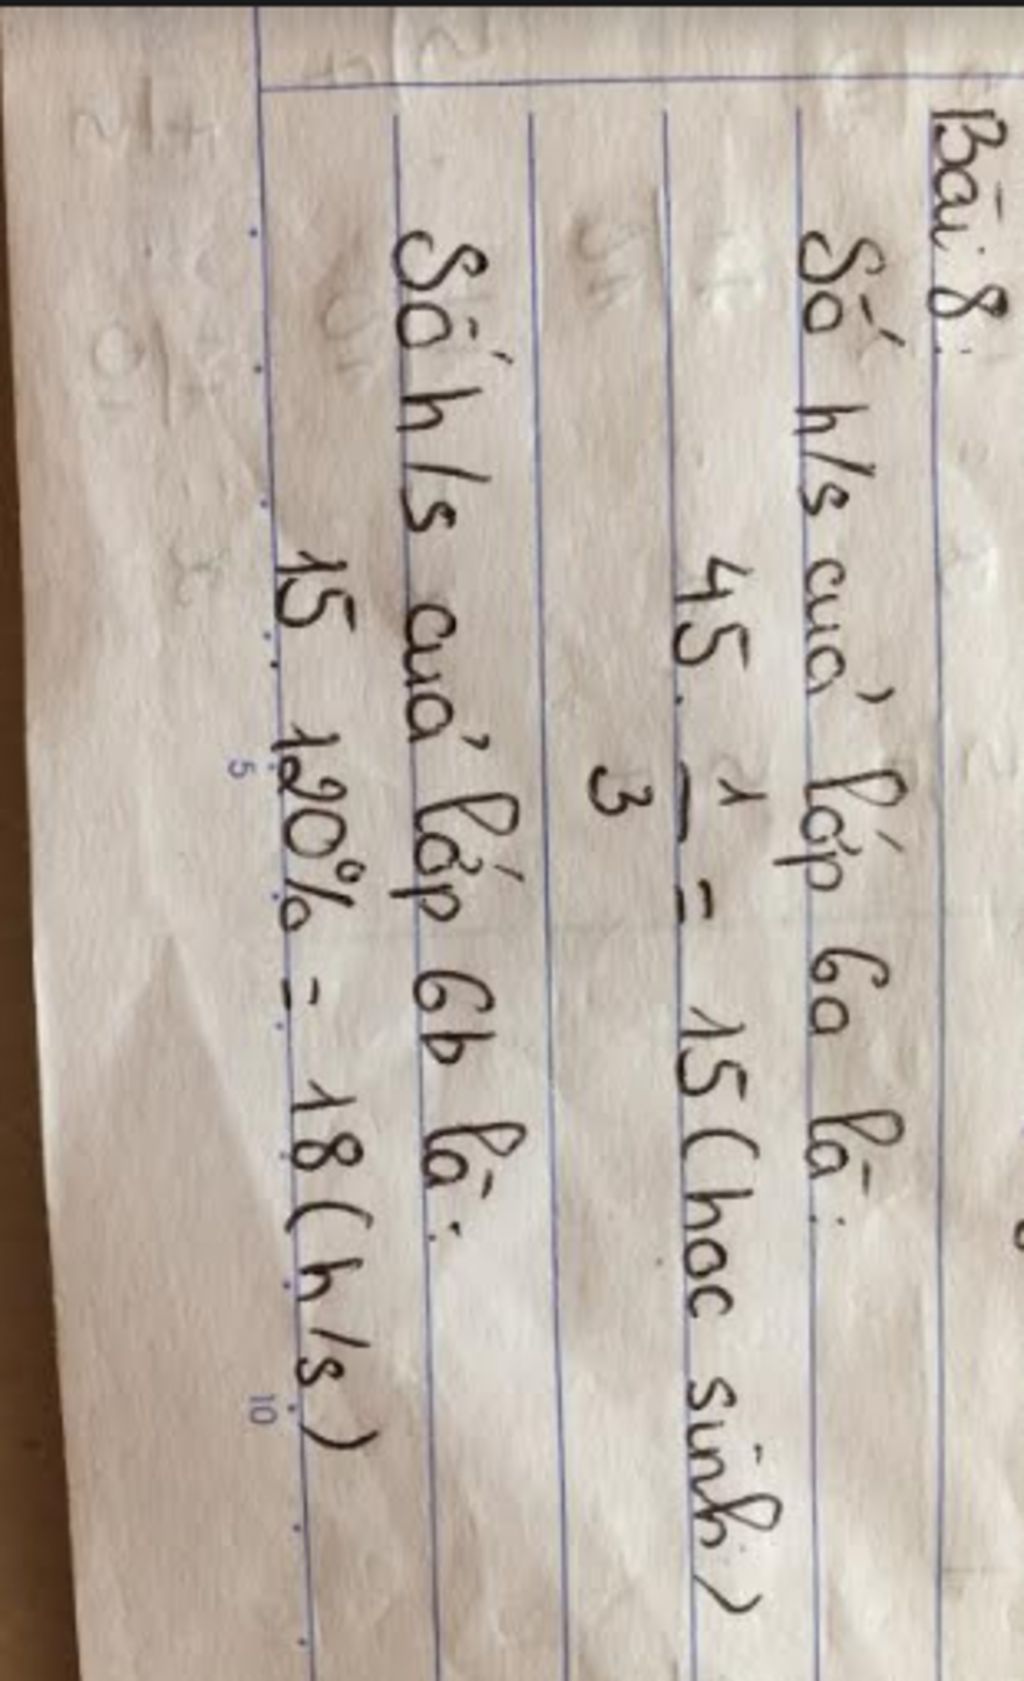 Bài 8:
Số h/s của lớp 6a là:
45. 1/3 = 15 (hoc sinh)
Số h/s của lớp 6b là:
15 . 120% = 18 (h/s)
5 10